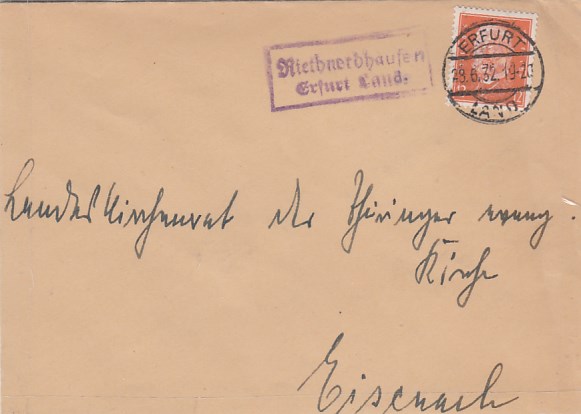 Riethnordhausen
Erfurt Land.
ERFURT
29.6.32.19-20
LAND
Landeskirchenrat der Thüringer evang.
Kirche
Eisenach